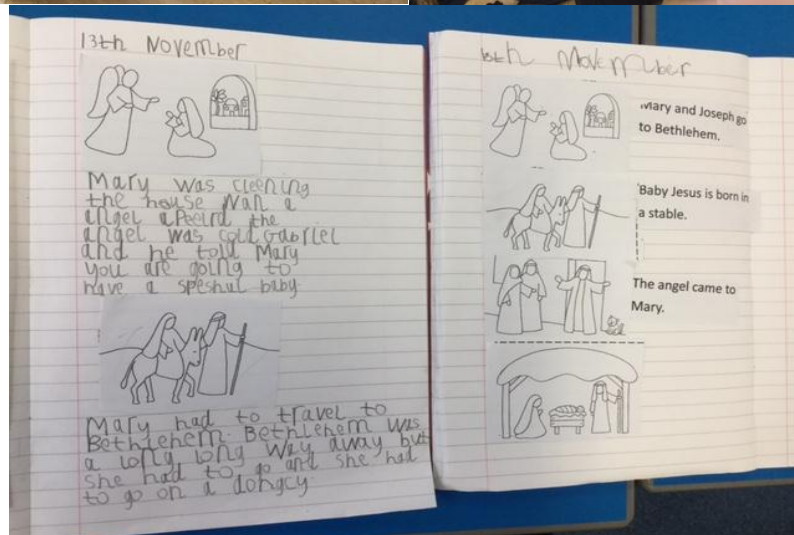 13th November
Mary was cleening
the house wan a
angel apeerd the
angel was cold Gabriel
and he told Mary
you are going to
have a speshul baby
Mary had to travel to
Bethlehem. Bethlehem was
a long long way away but
she had to go and she had
to go on a dongcy.
13th
Mary and Joseph go
to Bethlehem.
Baby Jesus is born in
a stable.
The angel came to
Mary.